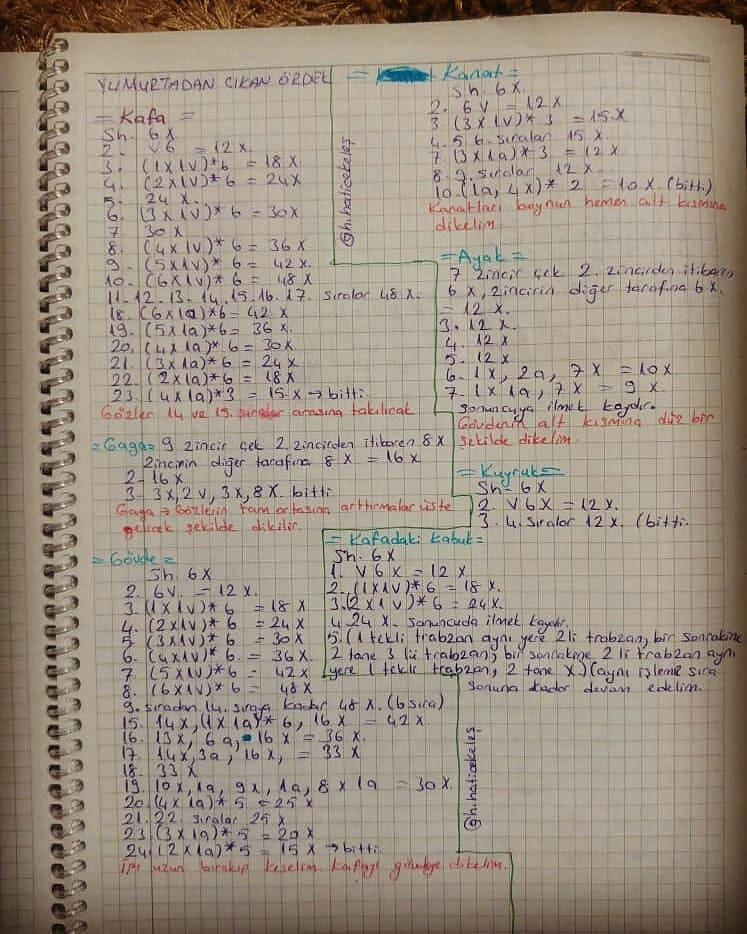 YUMURTADAN ÇIKAN ÖRDEK
= Kafa =
Sh. 6 X
2. V6 = 12 X.
3. (1X1V)*6 = 18 X
4. (2X1V)*6 = 24X
5. 24 X.
6. (3X1V)*6 = 30X
7. 30 X
8. (4X1V)*6 = 36 X
9. (5X1V)*6 = 42 X.
10. (6X1V)*6 = 48 X
11. 12. 13. 14. 15. 16. 17. sıralar 48 X.
18. (6X1a)*6 = 42 X
19. (5X1a)*6 = 36 X.
20. (4X1a)*6 = 30X
21. (3X1a)*6 = 24 X
22. (2X1a)*6 = 18X
23. (4X1a)*3 = 15 X → bitti.
Gözler 14 ve 15. sıralar arasına takılıcak
@h.haticekeleş
= Gaga = 9 zincir çek 2. zincirden itibaren 8 X
Zincirin diğer tarafına 8 X = 16 X
2- 16 X
3- 3X, 2V, 3X, 8X. bitti.
Gaga → Gözlerin tam ortasına arttırmalar üste
gelicek şekilde dikilir.
= Gövde =
Sh. 6X
2. 6V. = 12 X.
3. (1X1V)*6 = 18 X
4. (2X1V)*6 = 24 X
5. (3X1V)*6 = 30 X
6. (4X1V)*6. = 36 X
7. (5X1V)*6 = 42 X
8. (6X1V)*6 = 48X
9. sıradan 14. sıraya kadar 48 X. (6 sıra)
15. 14X, (1X1a)*6, 16 X = 42 X.
16. 13X, 6a, 16 X = 36 X.
17. 14X, 3a, 16 X, = 33 X
18. 33 X
19. 10X, 1a, 9X, 1a, 8X 1a = 30 X.
20. (4X1a)*5 = 25 X
21. 22. sıralar 25 X
23. (3X1a)*5 = 20 X
24. (2X1a)*5 = 15 X → bitti.
İpi uzun bırakıp keselim. Kafayı gövdeye dikelim.
= Kanat =
Sh. 6 X.
2. 6V = 12 X
3. (3X1V)*3 = 15 X
4. 5. 6. sıralar 15 X.
7. (3X1a)*3 = 12 X.
8. 9. sıralar 12 X.
10. (1a, 4X)*2 = 10 X. (bitti.)
Kanatları boynun hemen alt kısmına
dikelim.
= Ayak =
7 zincir çek 2. zincirden itibaren
6 X, zincirin diğer tarafına 6 X.
= 12 X.
3. 12 X.
4. 12 X
5. 12 X
6. 1X, 2a, 7X = 10X
7. 1X 1a, 7X = 9 X.
Sonuncuya ilmek kaydır.
Gövdenin alt kısmına düz bir
şekilde dikelim.
= Kuyruk =
Sh = 6X
2. V6X = 12X.
3. 4. sıralar 12 X. (bitti.
= Kafadaki Kabuk =
Sh. 6 X
1. V 6X = 12 X
2. (1X1V)*6 = 18 X.
3. (2X1V)*6 = 24X.
4. 24 X. Sonuncuda ilmek kaydır.
5. (1 tekli trabzan aynı yere 2li trabzan, bir sonrakine
2 tane 3 lü trabzan, bir sonrakine 2 li trabzan aynı
yere 1 tekli trabzan, 2 tane X.) (aynı işleme sıra
sonuna kadar devam edelim.
@h.haticekeleş